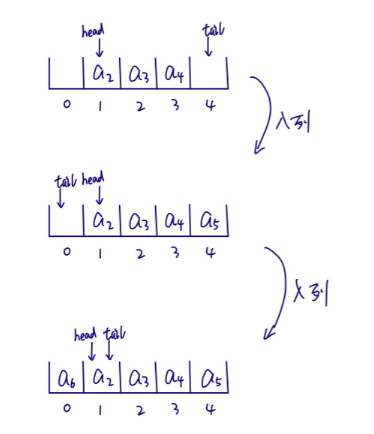 head tail
a₂ a₃ a₄
0 1 2 3 4
入列
tail head
a₂ a₃ a₄ a₅
0 1 2 3 4
入列
head tail
a₆ a₂ a₃ a₄ a₅
0 1 2 3 4